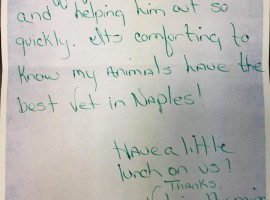 and helping him out so
quickly. Its comforting to
know my Animals have the
best vet in Naples!
Have a little
lunch on us!
Thanks,